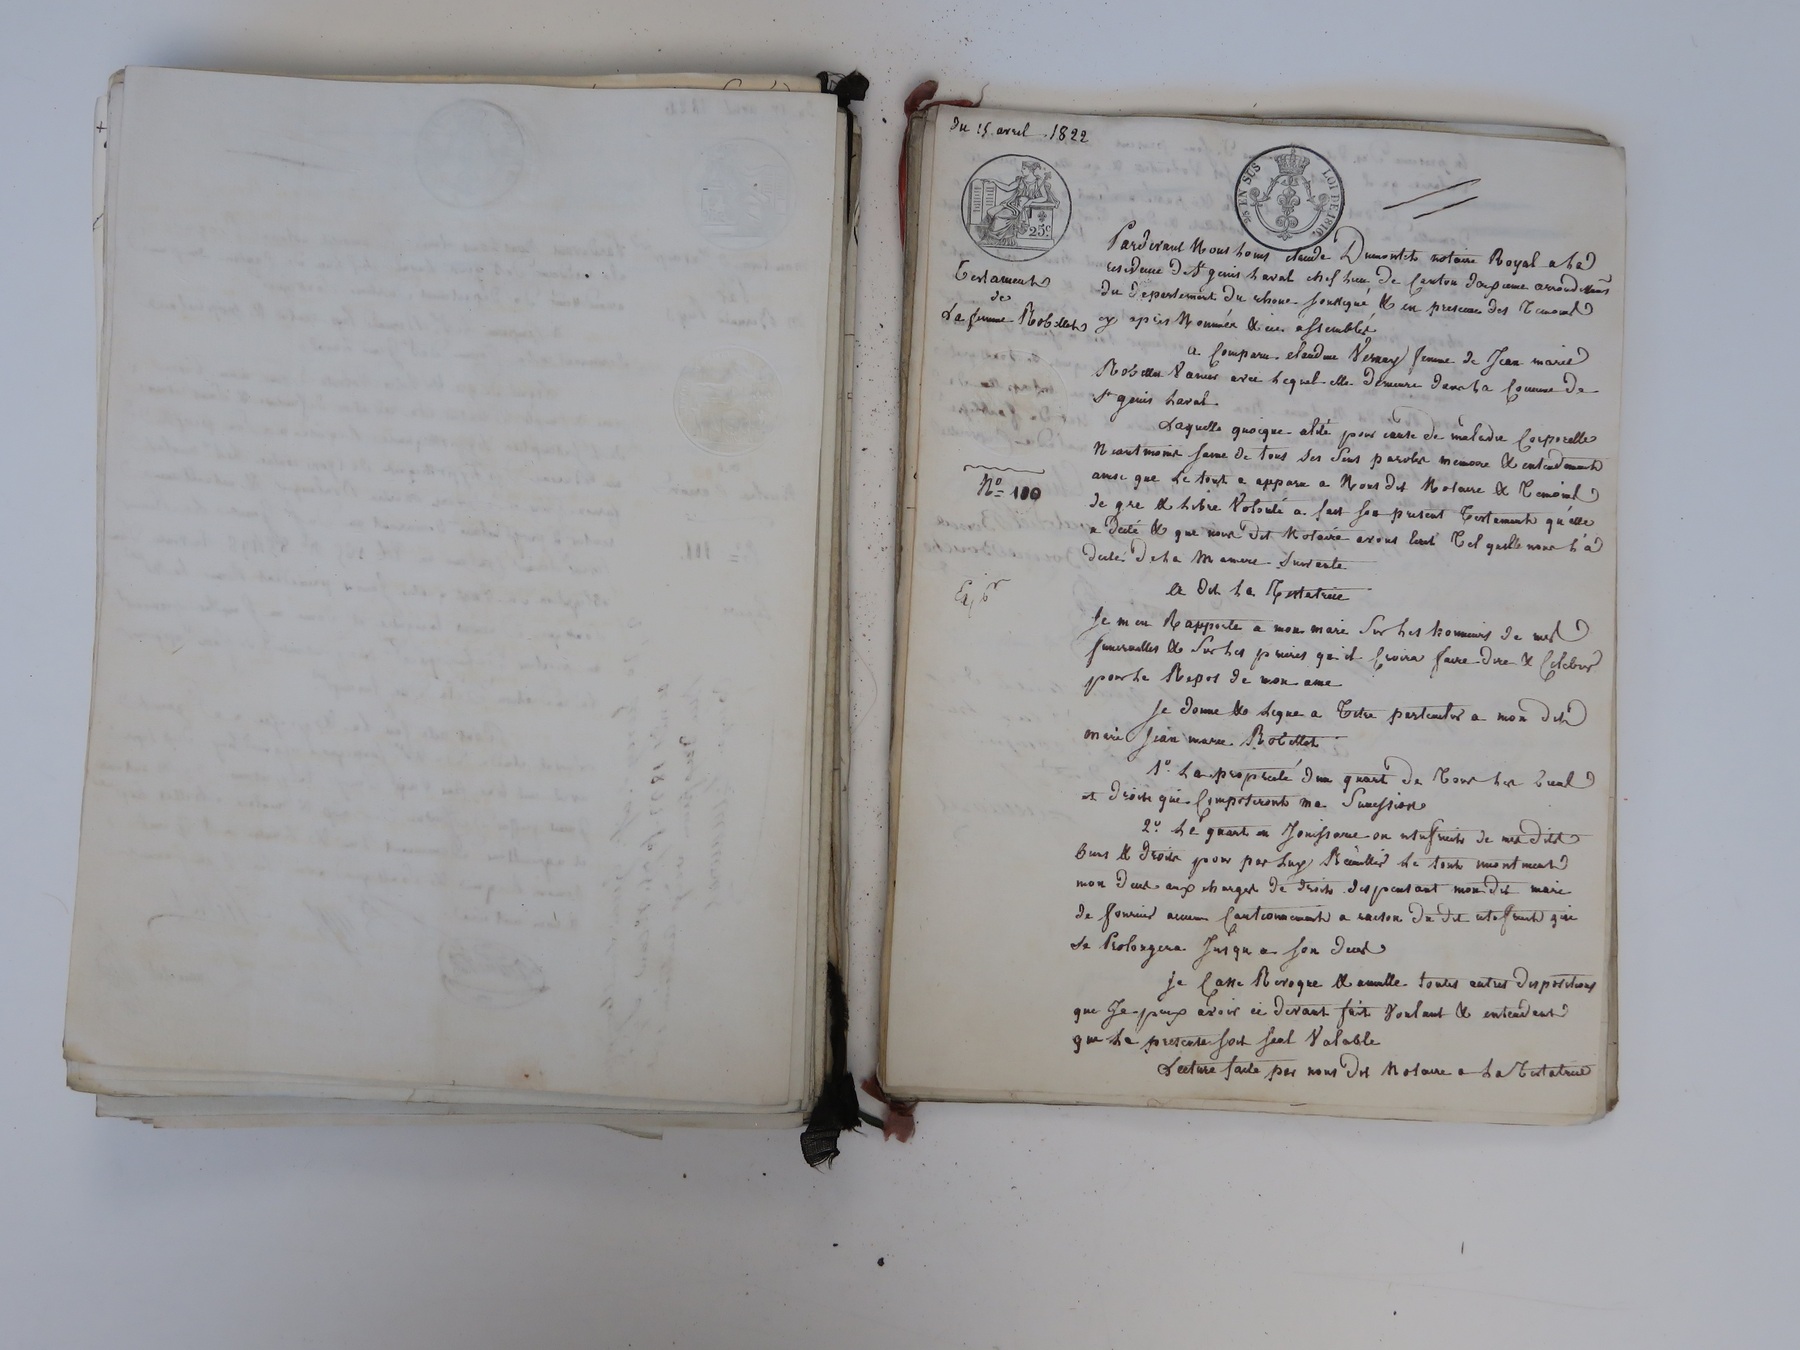 du 15 avril 1822
25c
25 EN SUS LOI DE 1816
Testament
de
La femme Robellet
N° 110
Pardevant Nous Louis claude Dumortet notaire Royal a la
residence de St genis Laval chef lieu de Canton deuxieme arrondissemt
du departement du rhone soussigné & en presence des Temoins
cy après Nommés & ici assemblés
a Comparu claudine Vernay femme de Jean marie
Robellet Vanier avec lequel elle demeure dans la Commune de
St genis Laval
Laquelle quoique alité pour cause de maladie Corporelle
Neantmoins saine de tous ses sens parolle memoire & entendement
ainsi que le tout a apparu a Nous dit Notaire & Temoins
de gre & libre Volonté a fait son present Testament qu'elle
a dicté & que nous dit Notaire avons Ecrit Tel quelle nous l'a
dicté de la Maniere suivante
A dit la Testatrice
Je m'en Rapporte a mon marie sur les honneurs de mes
funerailles & sur les prieres qu'il Croira faire dire & Celebrer
pour le Repos de mon ame
Je donne & legue a Titre particulier a mon dit
marie Jean marie Robellet
1° La proprieté d'un quart de Tous les biens
et droits qui Composeront ma Succession
2° Le quart en Jouissance ou usufruit de mes dits
biens & droits pour par luy Recueillir le tout incontinent
mon deces aux charges de droits dispensant mon dit marie
de fournir aucun Cautionnement a raison du dit usufruit qui
se Prolongera Jusqu'a son deces
je Casse Revoque & annulle toutes autres dispositions
que Je peux avoir ci devant fait Voulant & entendant
que la presente soit seul Valable
Lecture faite par nous dit Notaire a la Testatrice